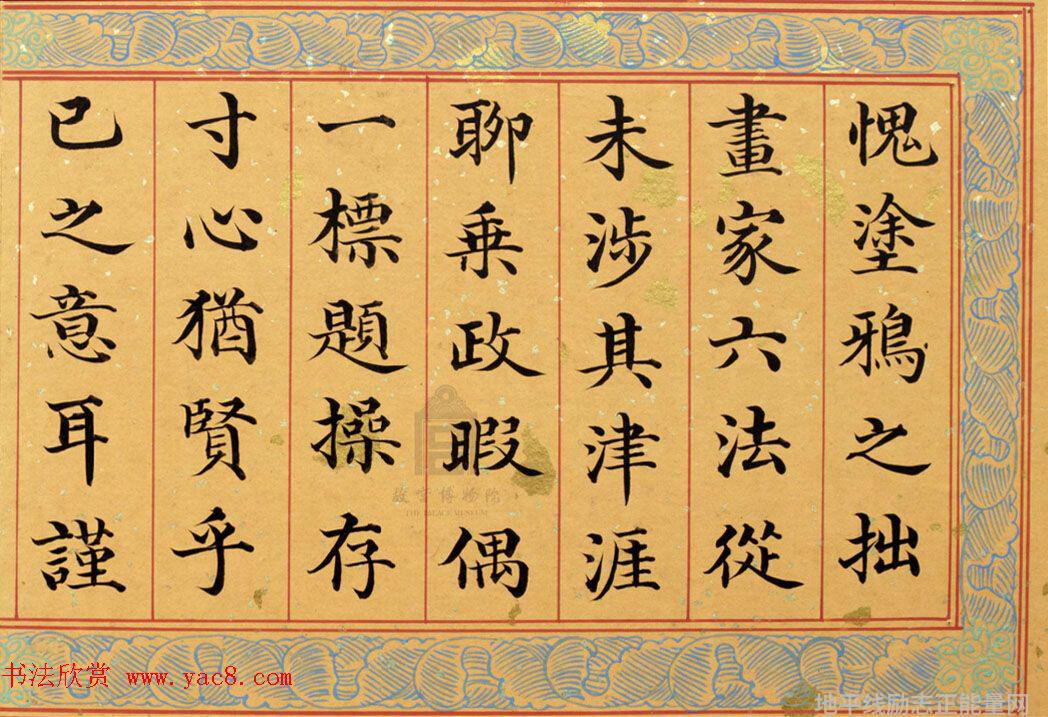 愧塗鴉之拙
畫家六法從
未涉其津涯
聊乗政暇偶
一標題操存
寸心猶賢乎
已之意耳謹
故宮博物院
THE PALACE MUSEUM
书法欣赏 www.yac8.com
地平线励志正能量网